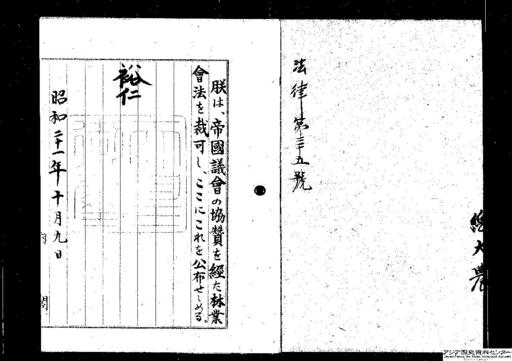 總大農
法律第三十五號
朕は、帝國議會の協賛を經た林業
會法を裁可し、ここにこれを公布せしめる。
裕仁
昭和二十一年十月九日
内
閣
アジア歴史資料センター